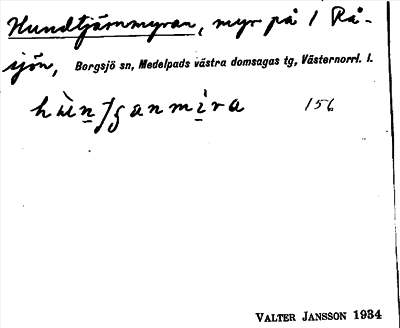 Hundtjärnmyran, myr på 1 Rå-
sjön, Borgsjö sn, Medelpads västra domsagas tg, Västernorrl. l.
156
VALTER JANSSON 1934